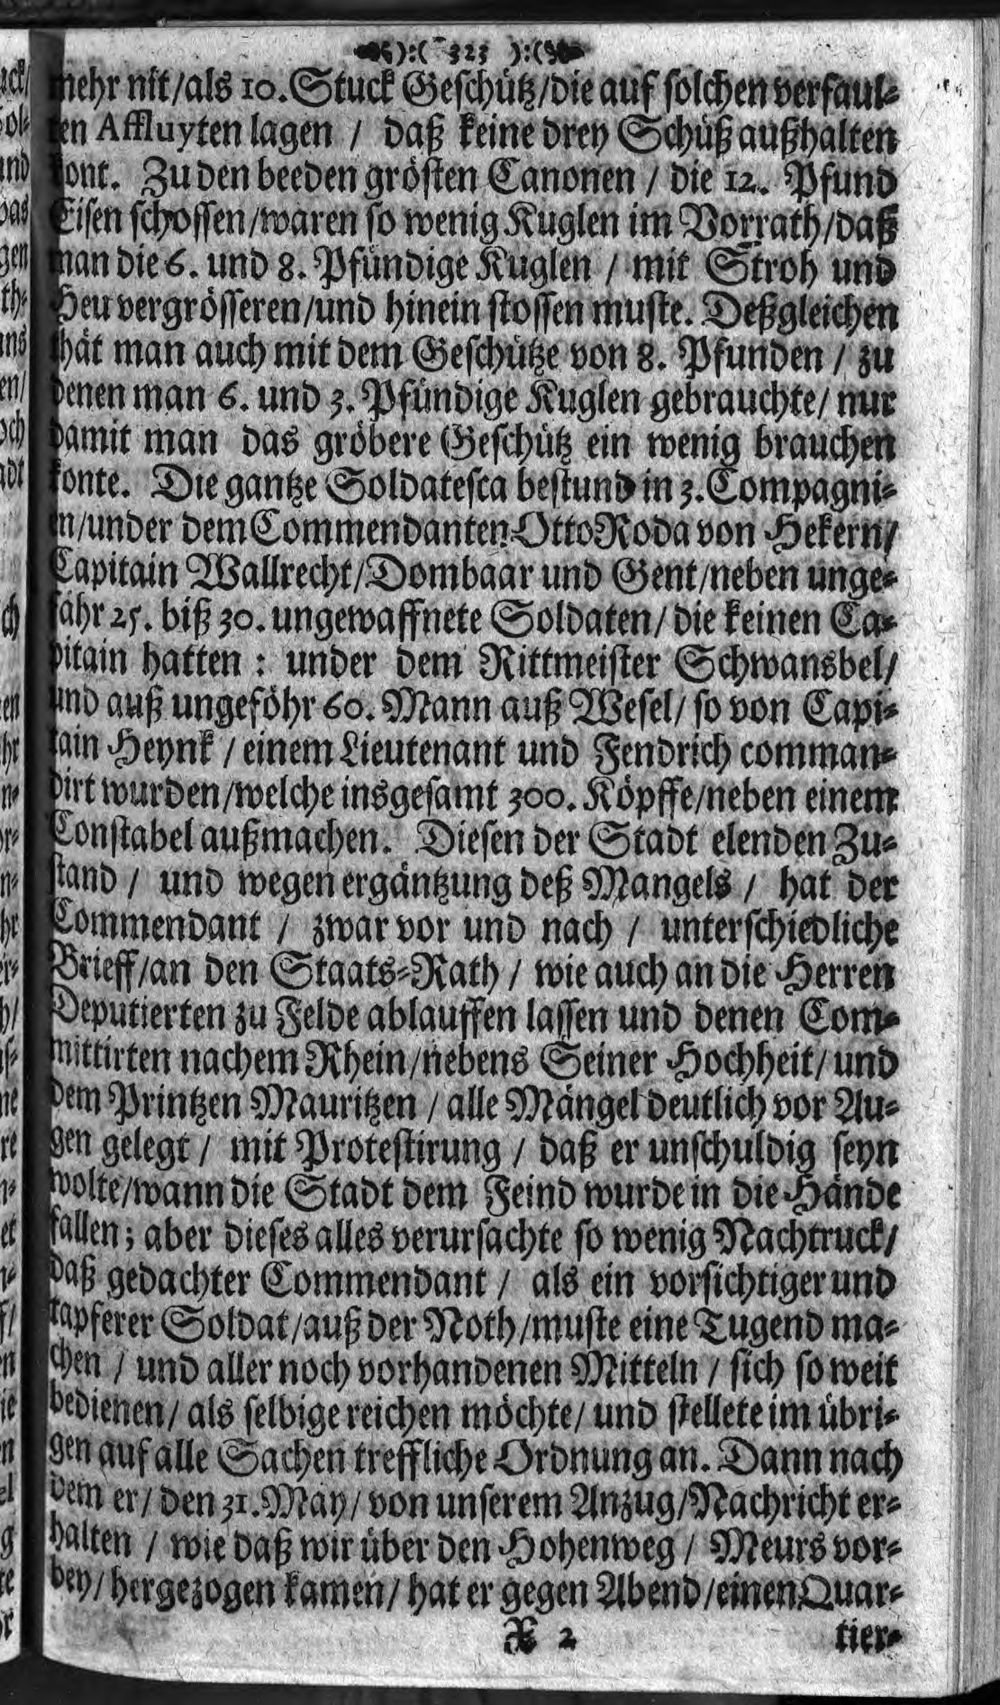 ):( 323 ):(
mehr nit/als 10. Stuck Geschütz/die auf solchen verfaul-
ten Affluyten lagen / daß keine drey Schüß außhalten
kont. Zu den beeden grösten Canonen / die 12. Pfund
Eisen schossen/waren so wenig Kuglen im Vorrath/daß
man die 6. und 8. Pfündige Kuglen / mit Stroh und
Heu vergrösseren/und hinein stossen muste. Deßgleichen
thät man auch mit dem Geschütze von 8. Pfunden / zu
denen man 6. und 3. Pfündige Kuglen gebrauchte/ nur
damit man das gröbere Geschütz ein wenig brauchen
konte. Die gantze Soldatesca bestund in 3. Compagni-
en/under dem Commendanten Otto Roda von Hekern/
Capitain Wallrecht/Dombaar und Gent/neben unge-
fähr 25. biß 30. ungewaffnete Soldaten/ die keinen Ca-
pitain hatten : under dem Rittmeister Schwansbel/
und auß ungeföhr 60. Mann auß Wesel/ so von Capi-
tain Heynk / einem Lieutenant und Fendrich comman-
dirt wurden/welche insgesamt 300. Köpffe/neben einem
Constabel außmachen. Diesen der Stadt elenden Zu-
stand / und wegen ergäntzung deß Mangels / hat der
Commendant / zwar vor und nach / unterschiedliche
Brieff/an den Staats-Rath / wie auch an die Herren
Deputierten zu Felde ablauffen lassen und denen Com-
mittirten nachem Rhein/nebens Seiner Hochheit/ und
dem Printzen Mauritzen / alle Mängel deutlich vor Au-
gen gelegt / mit Protestirung / daß er unschuldig seyn
wolte/wann die Stadt dem Feind wurde in die Hände
fallen; aber dieses alles verursachte so wenig Nachtruck/
daß gedachter Commendant / als ein vorsichtiger und
tapferer Soldat/auß der Noth/muste eine Tugend ma-
chen / und aller noch vorhandenen Mitteln / sich so weit
bedienen/ als selbige reichen möchte/ und stellete im übri-
gen auf alle Sachen treffliche Ordnung an. Dann nach
dem er/ den 31. May/ von unserem Anzug/Nachricht er-
halten / wie daß wir über den Hohenweg / Meurs vor-
bey/ hergezogen kamen/ hat er gegen Abend/einen Quar-
X 2 tier-